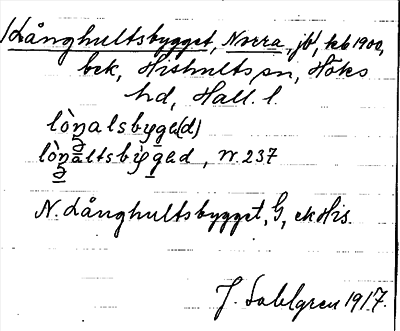 Långhultsbygget, Norra, jb, kb 1900,
bek, Hishults sn, Höks
hd, Hall. l.
lòŋalsbyge(d)
lòŋaltsbẏged, W. 237
N. Långhultsbygget, G, ekHis.
J. Sahlgren 1917.